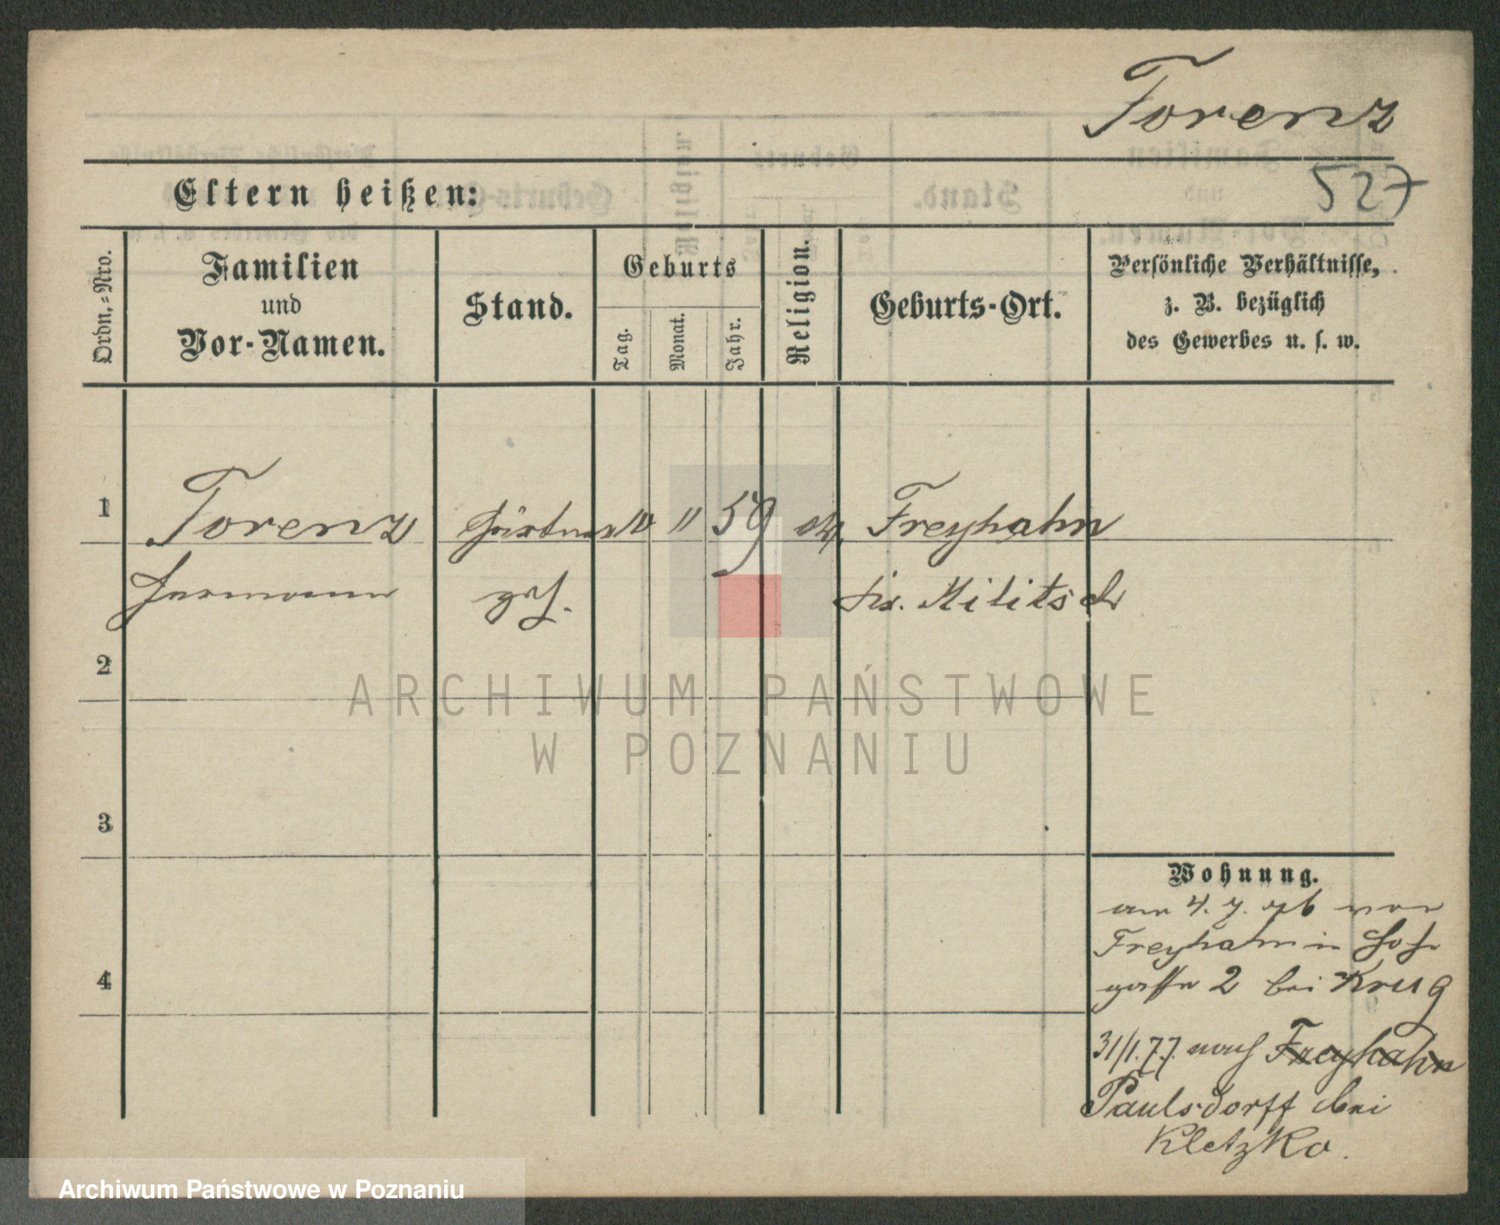 Torenz
527
Eltern heißen:
Ordn.=Nro.
Familien
und
Vor-Namen.
Stand.
Geburts
Tag.
Monat.
Jahr.
Religion.
Geburts-Ort.
Persönliche Verhältnisse,
z. B. bezüglich
des Gewerbes u. s. w.
1
Torenz Gärtner 10 11 59 Freyhahn
Hermann geh. Militsch
2
3
4
Wohnung.
am 4. 7. 76 von
Freyhahn in
gasse 2 bei Krug
31/1. 77. nach Freyhahn
Paulsdorff bei
Kletzko.
ARCHIWUM PAŃSTWOWE
W POZNANIU
Archiwum Państwowe w Poznaniu